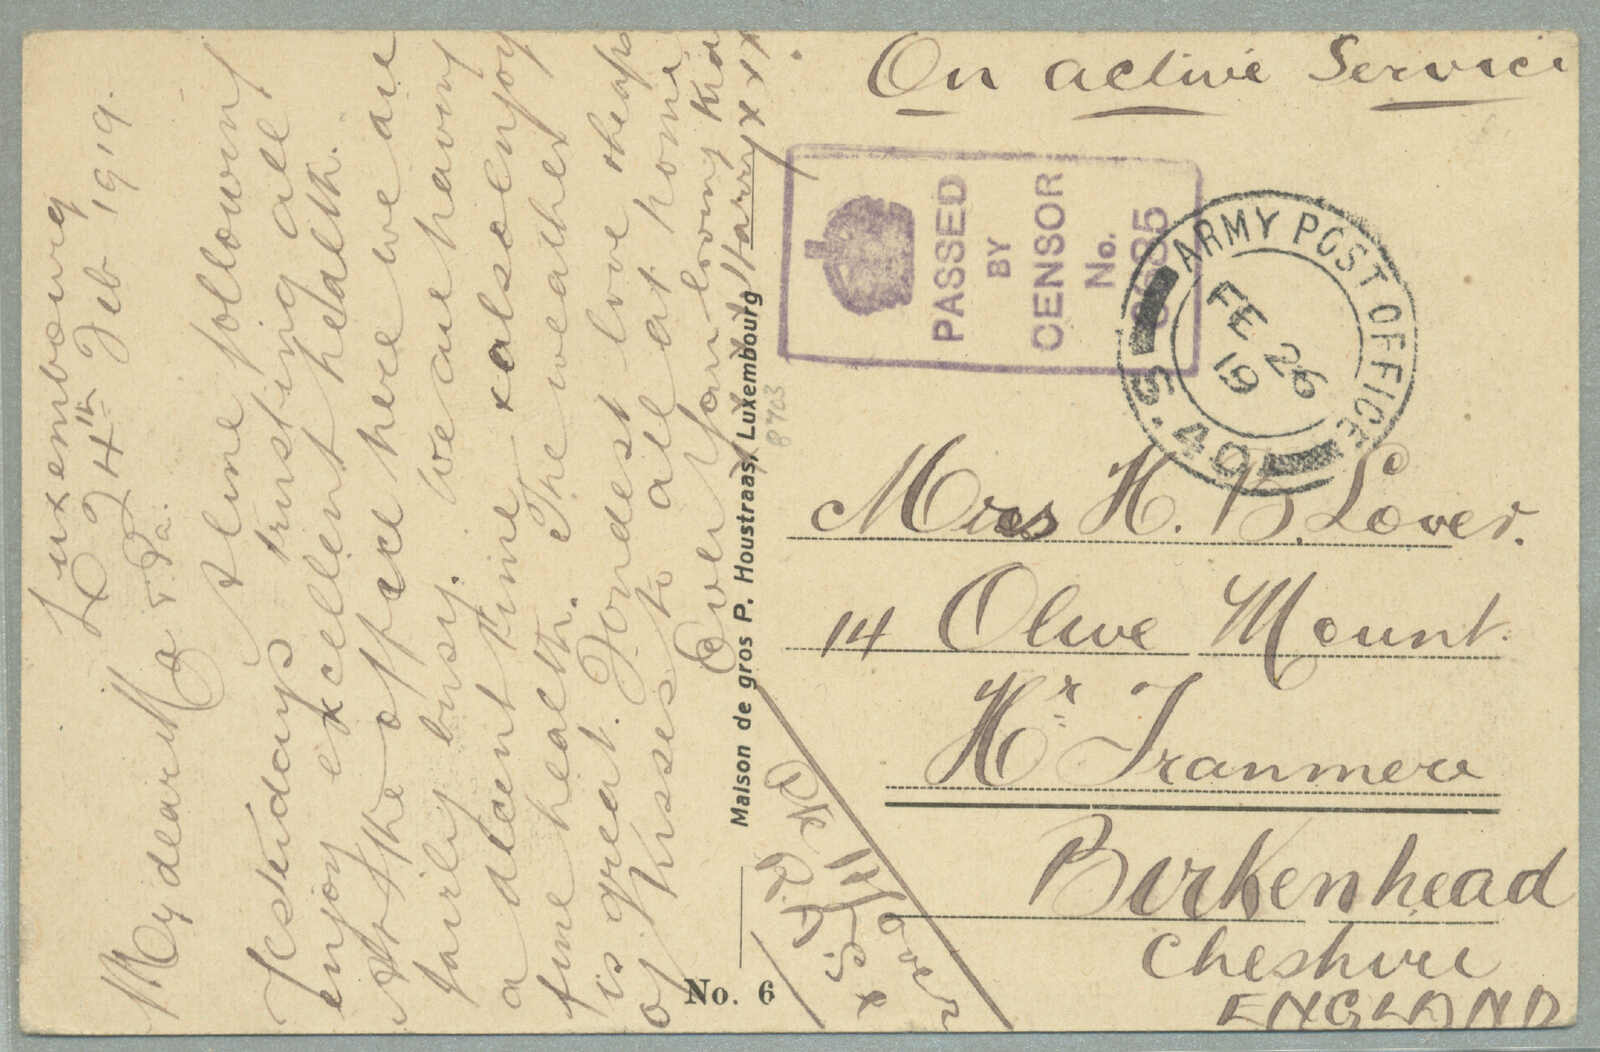 On active Service
PASSED
BY
CENSOR
No.
ARMY POST OFFICE
S.40
FE 26
19
Mrs H. B. Lover.
14 Olive Mount.
Hr. Tranmere
Birkenhead
Cheshire
ENGLAND
Luxembourg
24th Feb 1919.
My dear Ma & Pa.
A line following
Yesterdays trusting all
enjoy excellent health.
At the office here we are
fairly busy. We are having
a decent time & also enjoy
fine health. The weather
is great. Fondest love & heaps
of kisses to all at home
Ever Your loving kid
Harry xxxx
Maison de gros P. Houstraas, Luxembourg
8703
No. 6
over